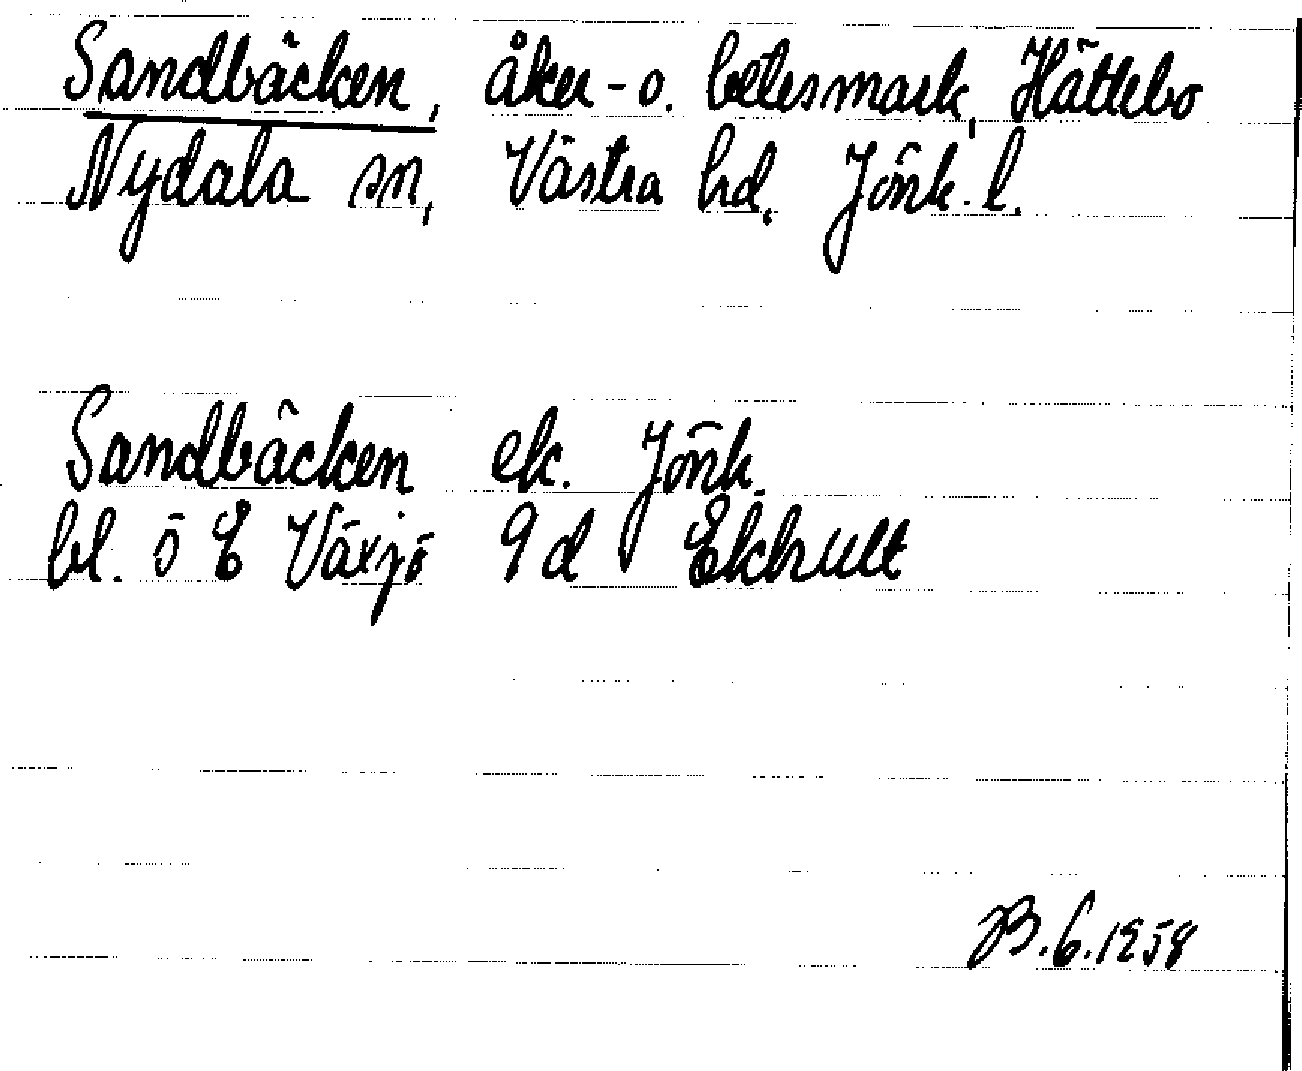 Sandbäcken, åker- o. betesmark, Hättebo
Nydala sn, Västra hd, Jönk. l.
Sandbäcken ek. Jönk.
bl. 5 E Växjö 9d Ekhult
B.6.1958